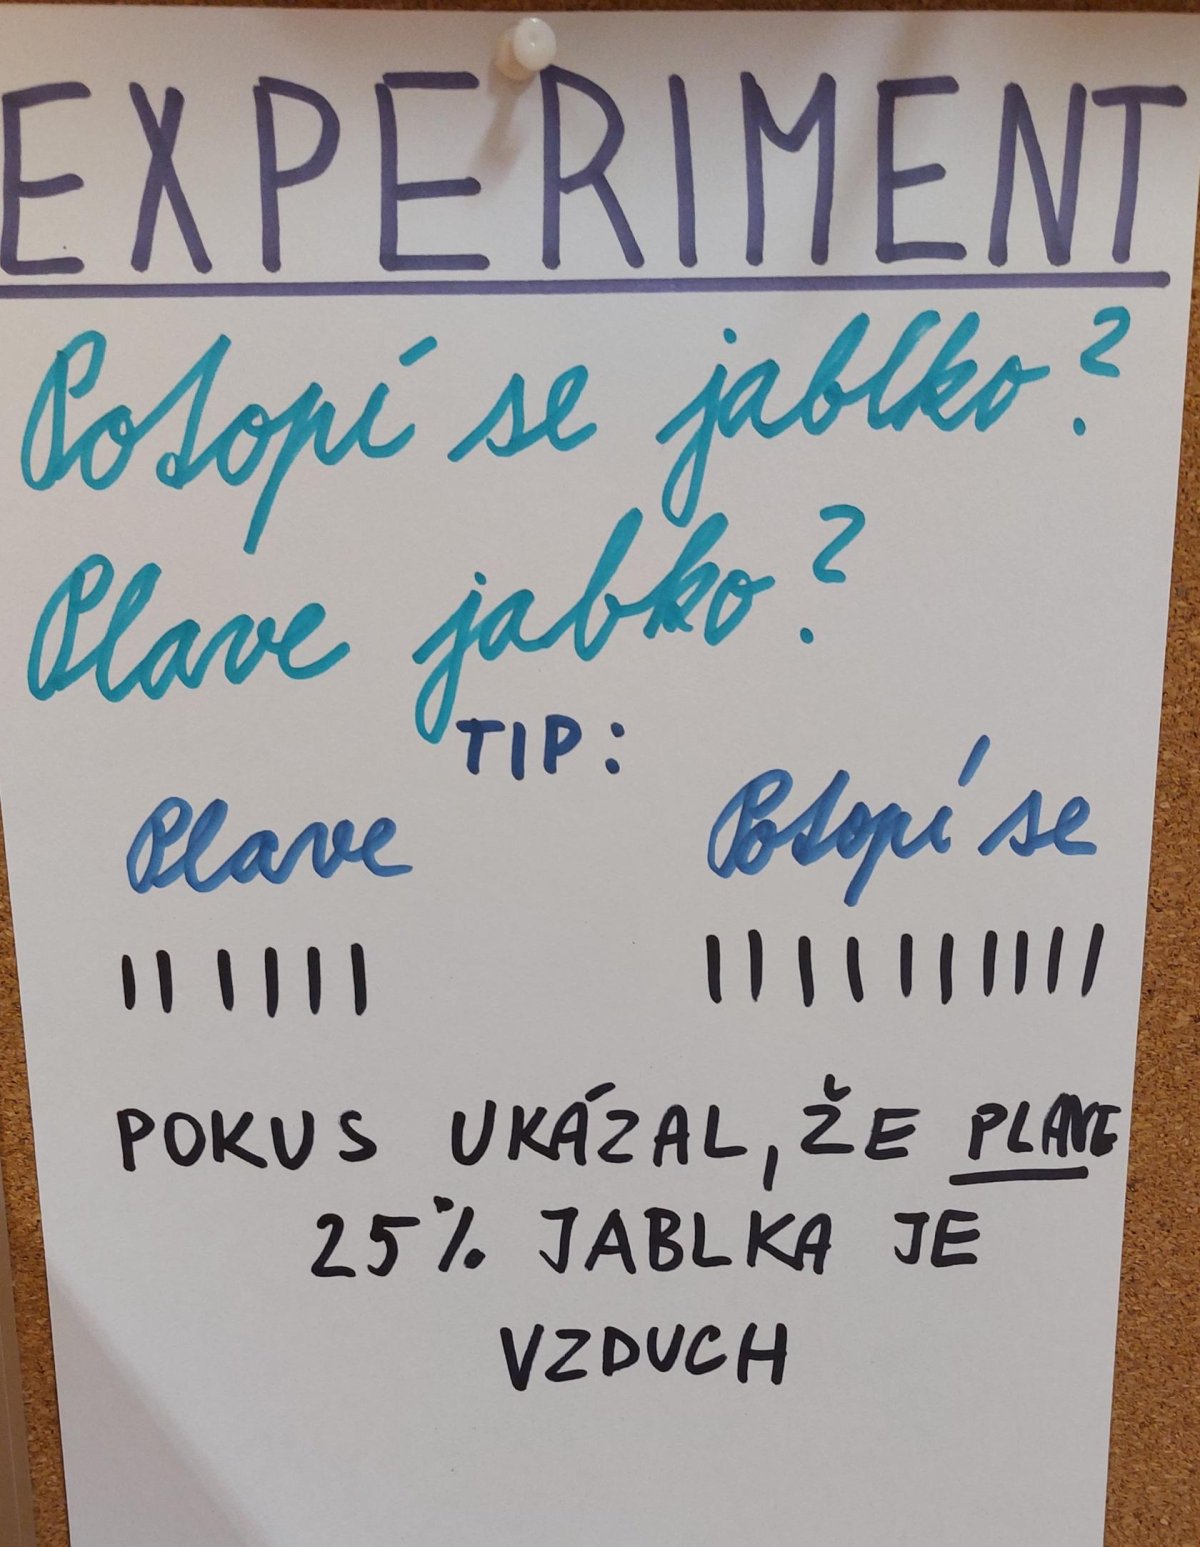 EXPERIMENT
Potopí se jablko?
Plave jabko?
TIP:
Plave Potopí se
|||||| ||||||||||
POKUS UKÁZAL, ŽE PLAVE
25% JABLKA JE
VZDUCH